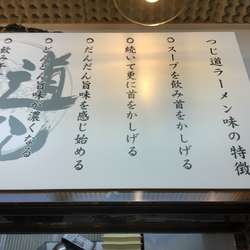 つじ道ラーメン味の特徴
○スープを飲み首をかしげる
○続いて更に首をかしげる
○だんだん旨味を感じ始める
○どんどん旨味が濃くなる
飲み
道